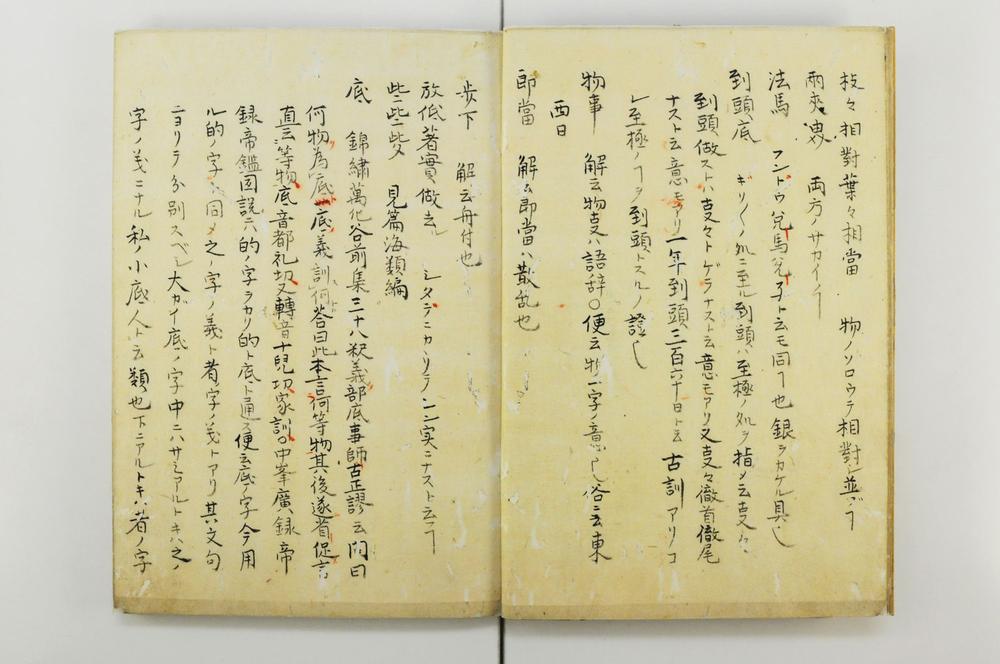 枝々相對葉々相當　物ノソロウテ相對シ並フヿ
兩爽　両方ノサカイヿ
法馬　フンドウ兌馬兌子ト云モ同ヿ也銀ヲカケル具也
到頭底　ギリ〱ノ処ニ至ル到頭ハ至極ノ処ヲ指メ云支々
到頭做ストハ支々トゲラナスト云意モアリ又支々徹首徹尾
ナスト云意モアリ一年到頭三百六十日ト云古訓アリコ
レ至極ノヿヲ到頭トスルノ證也
物事　解云物支ハ語辞○便云物一字ノ意也俗ニ云東
西日
郎當　解云郎當ハ散乱也
步下　解云舟付也
放低著實做去ル　シタテニカヽリテシンジ実ニナスト云ヿ
些些些　見篇海類編
底　錦繡萬花谷前集三十八釈義部底事師古正謬云问曰
何物為底底義訓何荅曰此本言何等物其後遂省促言
直云等物底音都礼切又轉音丁兒切家訓○中峯廣録帝
録帝鑑図説ニ的ノ字ヲカリ的ト底ト通ス便云底ノ字今用
ル的ノ字ト同メ之ノ字ノ義ト者ノ字ノ義トアリ其文句
ニヨリテ分別スベシ大ガイ底ノ字中ニハサミアルトキハ之ノ
字ノ義ニナル私ノ小底人ト云類也下ニアルトキハ者ノ字